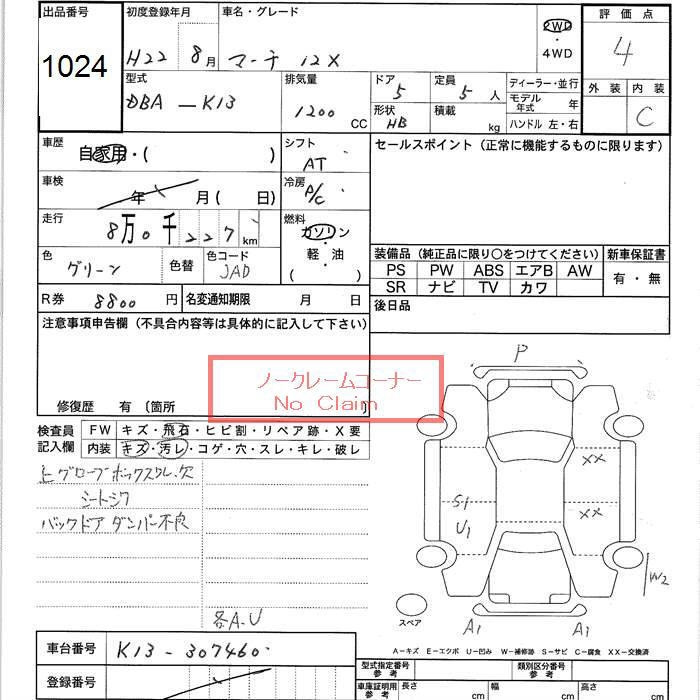 出品番号 初度登録年月 車名・グレード 評価点
1024
H22 8月 マーチ 12X 2WD・4WD 4
型式 排気量 ドア 定員 ディーラー・並行 外装 内装
DBA-K13 1200 CC 5 5人 モデル年式 年 C
形状 積載 ハンドル 左・右
HB kg
車歴 シフト セールスポイント (正常に機能するものに限ります)
自家用・( ) AT
車検 冷房
年 月( 日) A/C
走行 燃料
8万0千227km ガソリン
色 色替 色コード 軽・油
グリーン JAD ( )
装備品 (純正品に限り〇をつけてください) 新車保証書
PS PW ABS エアB AW 有・無
SR ナビ TV カワ
R券 8800円 名変通知期限 月 日 後日品
注意事項申告欄 (不具合内容等は具体的に記入して下さい)
ノークレームコーナー
No Claim
修復歴 有 〔箇所
検査員記入欄 FW キズ・飛石・ヒビ割・リペア跡・X要
内装 キズ・汚レ・コゲ・穴・スレ・キレ・破レ
上グローブボックスワレ、欠
シートシワ
バックドアダンパー不良
各A.U
P
XX
S1 XX
U1
W2
スペア A1 A1
A-キズ E-エクボ U-凹み W-補修跡 S-サビ C-腐食 XX-交換済
車台番号 K13-307460
登録番号
型式指定番号 参考 類別区分番号 参考
車庫証明用 参考 長さ cm 幅 cm 高さ cm